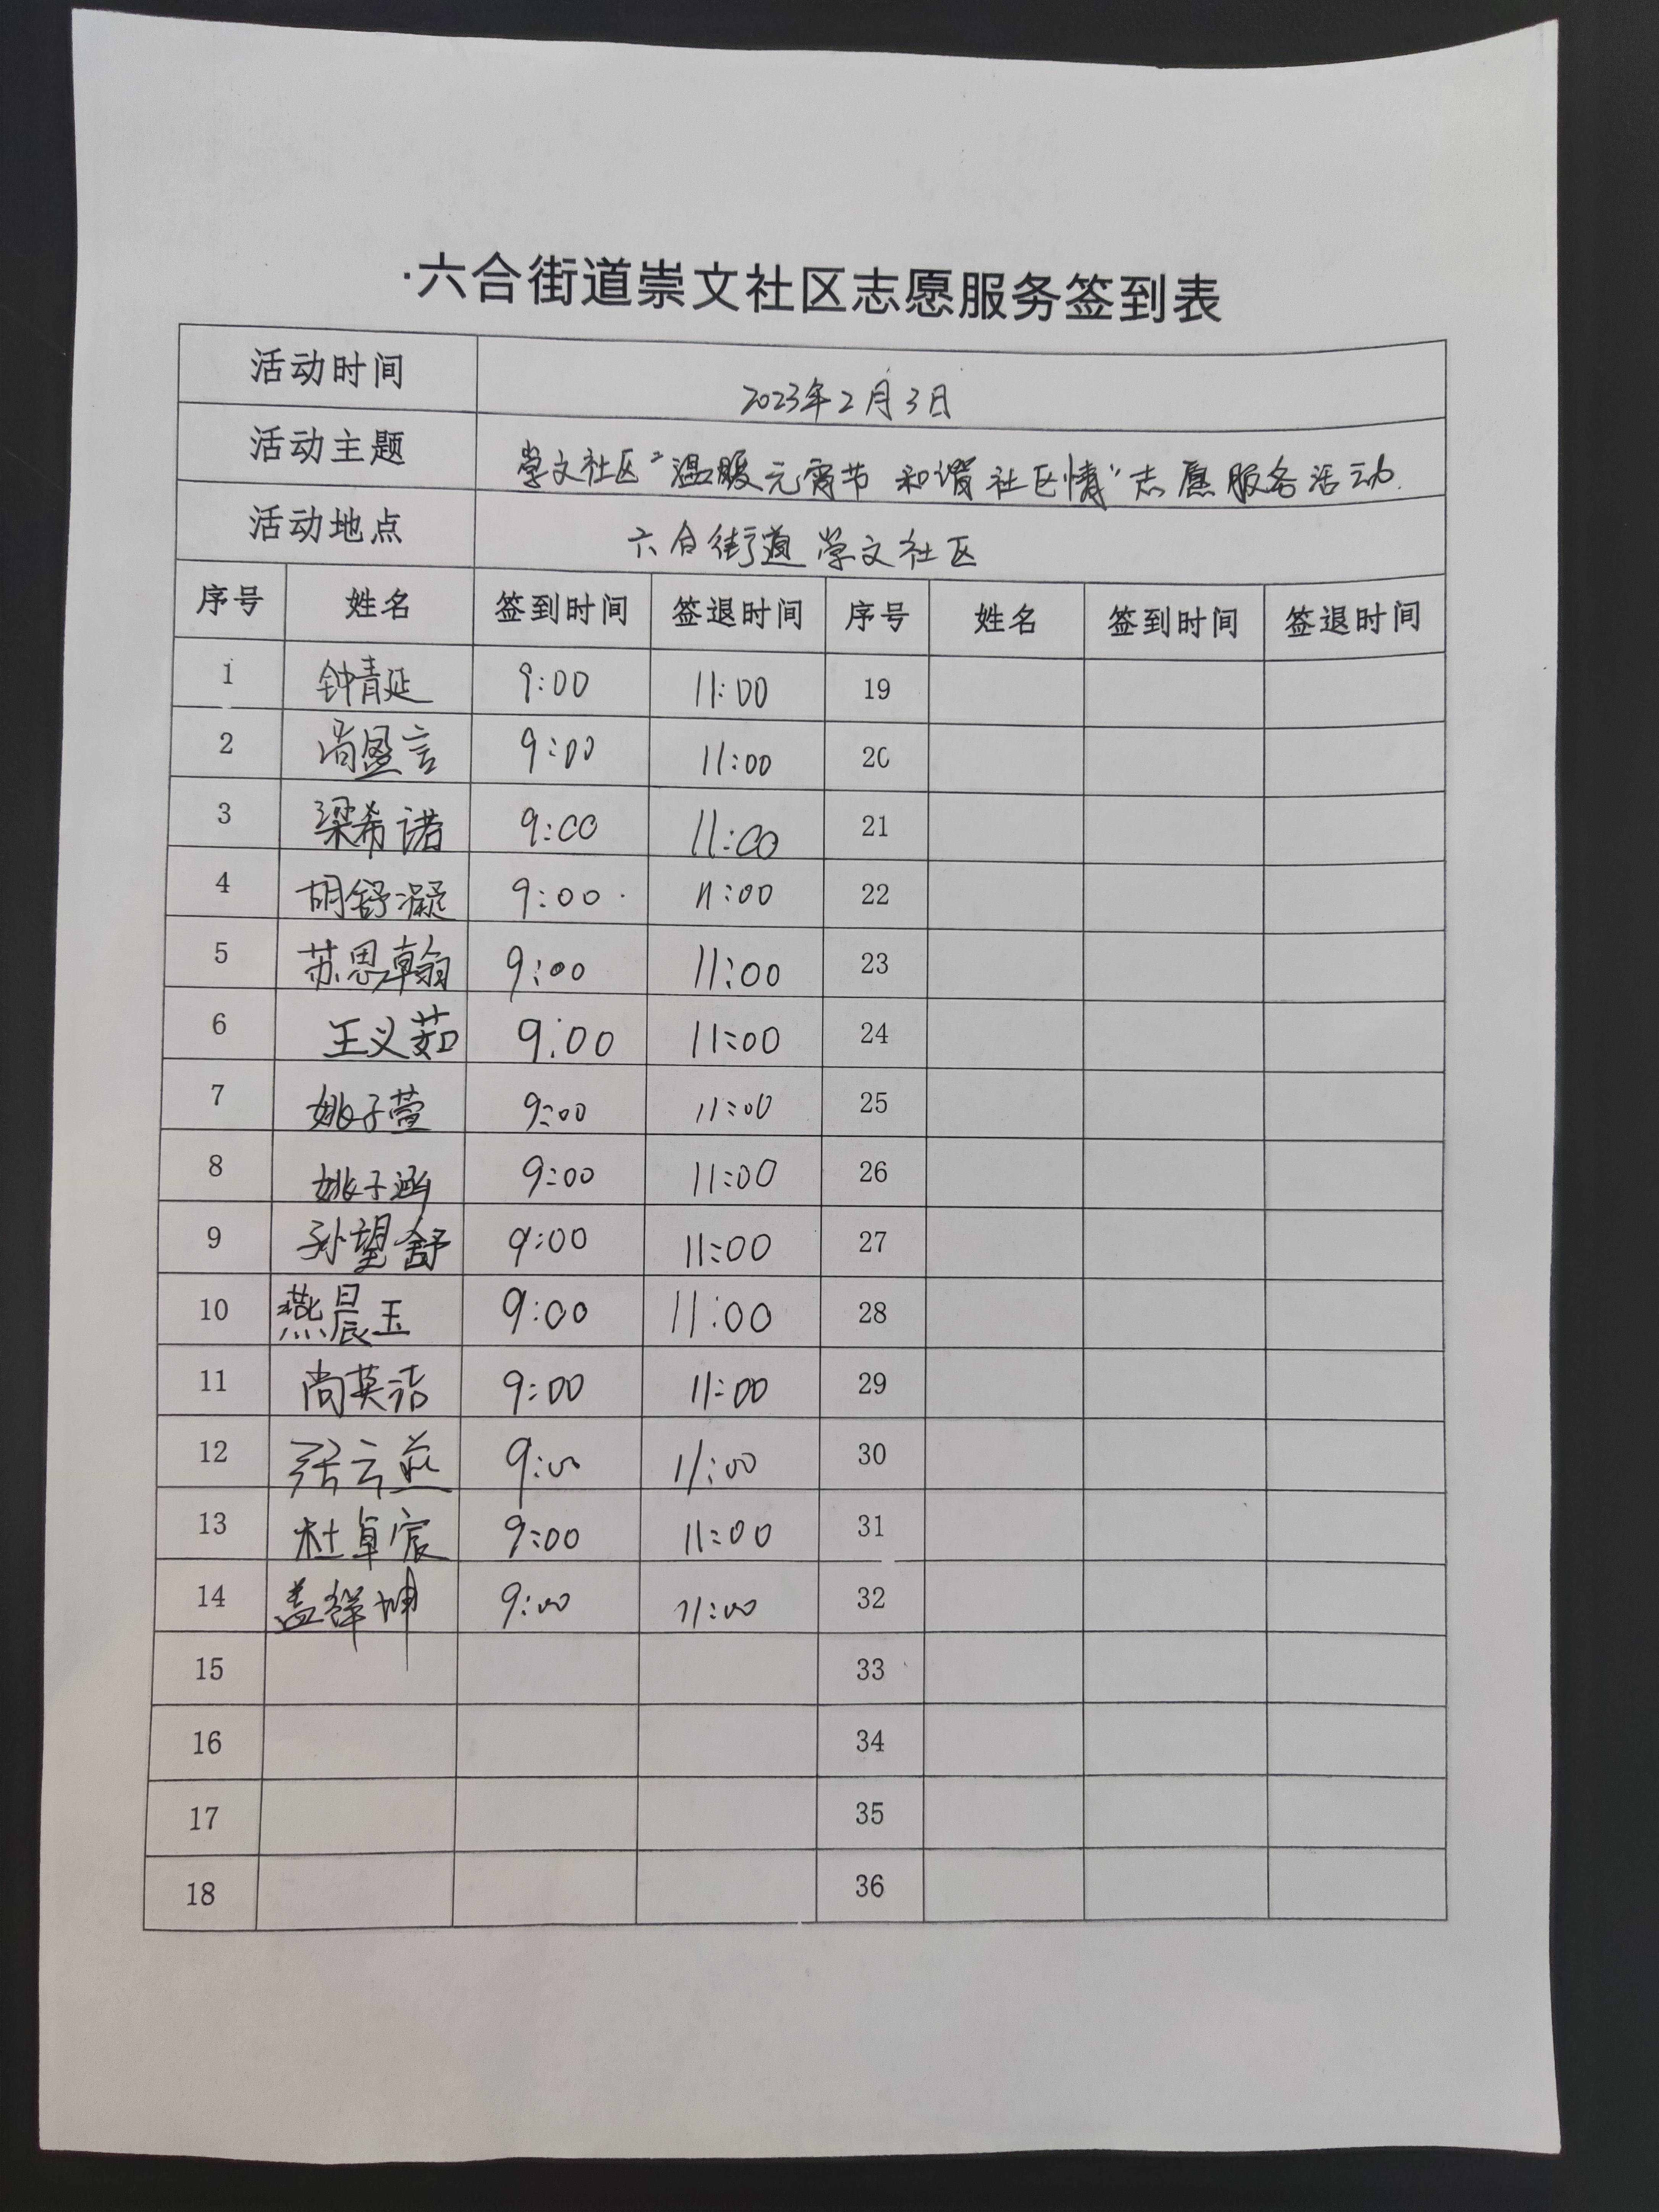 ·六合街道崇文社区志愿服务签到表
活动时间 2023年2月3日
活动主题 学文社区“温暖元宵节 和谐社区情”志愿服务活动.
活动地点 六合街道学文社区
序号 姓名 签到时间 签退时间 序号 姓名 签到时间 签退时间
1 钟青延 9:00 11:00 19
2 尚盈言 9:00 11:00 20
3 梁希诺 9:00 11:00 21
4 胡舒凝 9:00 11:00 22
5 苏思翰 9:00 11:00 23
6 王义茹 9:00 11:00 24
7 姚子萱 9:00 11:00 25
8 姚子涵 9:00 11:00 26
9 孙望舒 9:00 11:00 27
10 燕晨玉 9:00 11:00 28
11 尚英洁 9:00 11:00 29
12 张云燕 9:00 11:00 30
13 杜卓宸 9:00 11:00 31
14 盖祥坤 9:00 11:00 32
15 33
16 34
17 35
18 36